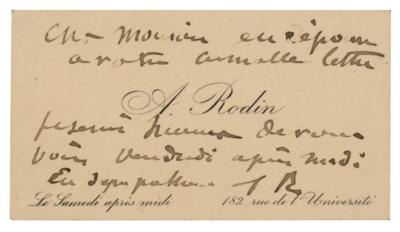 Ch Monsieur en répons
a votre aimable lettre
A. Rodin
je serai heureux de vous
voir vendredi après midi
En sympathie A R
Le Samedi après midi 182, rue de l'Université